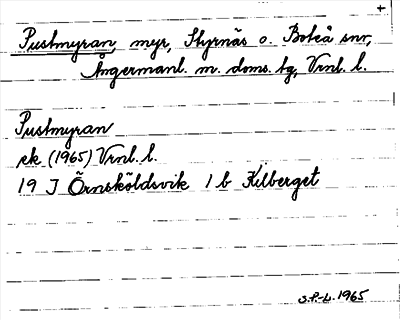 +
Pustmyran, myr, Styrnäs o. Boteå snr,
Ångermanl. m. doms. tg, Vrnl. l.
Pustmyran
ek (1965) Vrnl. l.
19 J Örnsköldsvik 1 b Kilberget
S.P.-L. 1965